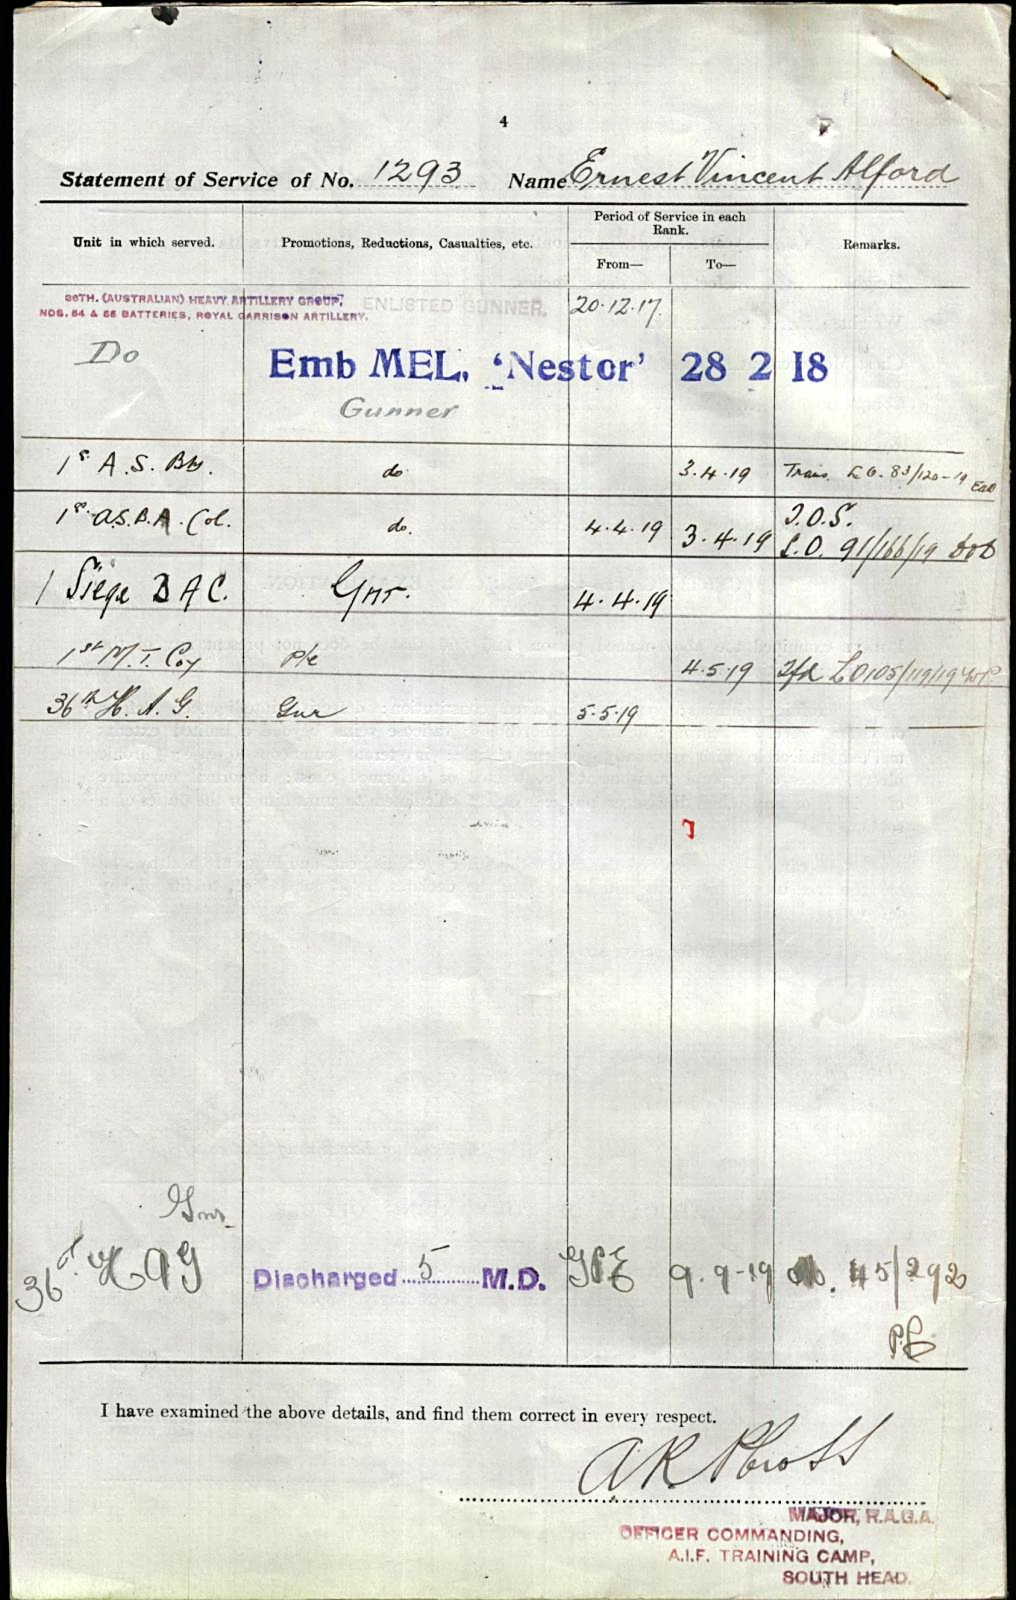 4
Statement of Service of No. 1293 Name Ernest Vincent Alford
Unit in which served. Promotions, Reductions, Casualties, etc. Period of Service in each Rank. From— To— Remarks.
36TH. (AUSTRALIAN) HEAVY ARTILLERY GROUP,
NOS. 54 & 55 BATTERIES, ROYAL GARRISON ARTILLERY. ENLISTED GUNNER. 20.12.17.
Do Emb MEL. 'Nestor' 28 2 18
Gunner
1st A. S. Bty. do 3.4.19 Trans. 83/120-19
1st A.S.B.A. Col. do. 4.4.19 3.4.19 T.O.S.
L.O. 91/166/19
1 Siege B A C. Gnr. 4.4.19
1st M. T. Coy Pte 4.5.19 Tfd L0105/119/19
36th H. A. G. Gnr 5.5.19
Gnr
36th H A G Discharged 5 M.D. 9.9-19 45/292
I have examined the above details, and find them correct in every respect.
MAJOR, R.A.G.A.
OFFICER COMMANDING,
A.I.F. TRAINING CAMP,
SOUTH HEAD.